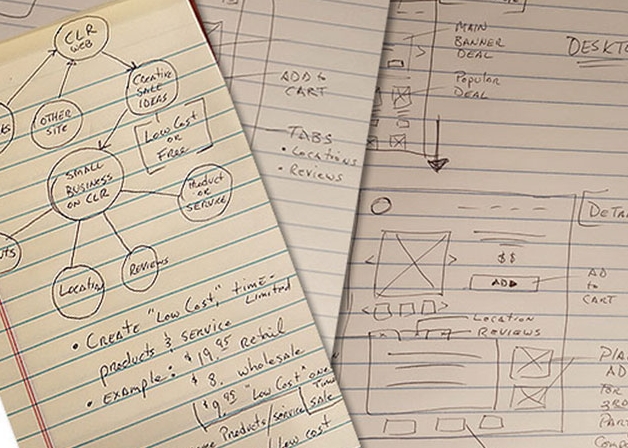 CLR
WEB
OTHER
SITE
Creative
SALE
IDEAS
Low Cost
OR
FREE
SMALL
BUSINESS
ON CLR
PRODUCT
OR
SERVICE
LOCATION
REVIEWS
• CREATE "LOW COST," TIME-
LIMITED
PRODUCTS & SERVICE
• EXAMPLE: $19.95 RETAIL
$8. WHOLESALE
$9.95 "LOW COST"
PRODUCTS/SERVICE
SALE
LOW COST
ADD to
CART
TABS
• Locations
• Reviews
MAIN
BANNER
DEAL
Popular
DEAL
$$
ADD
AD
to
CART
LOCATION
REVIEWS